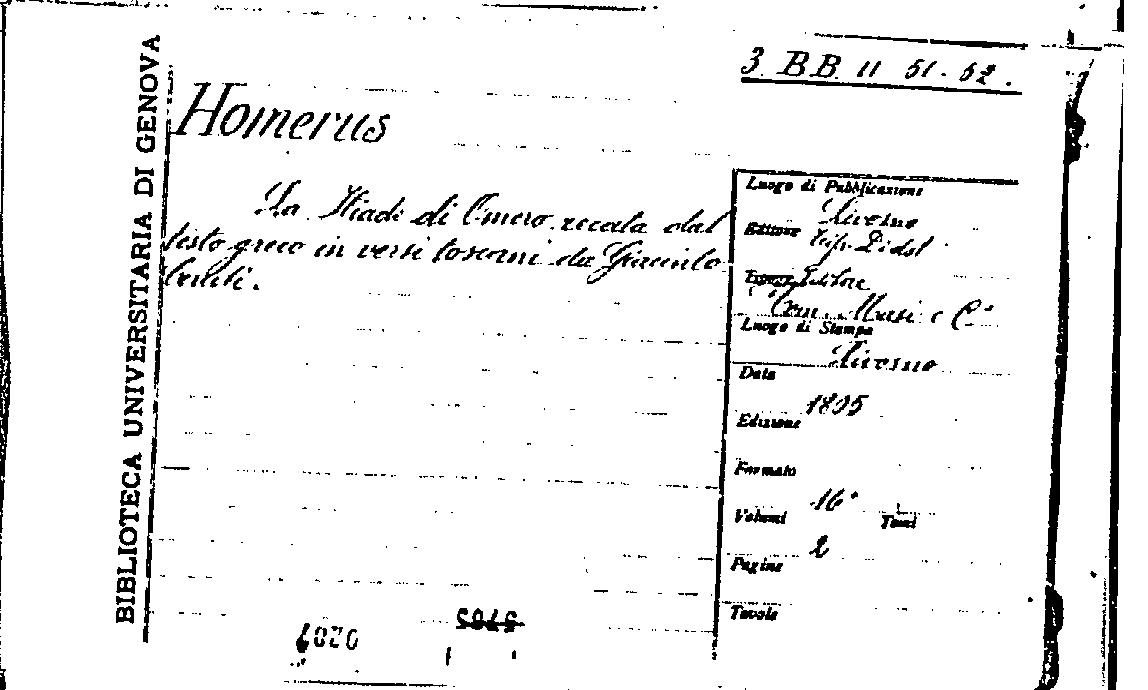 BIBLIOTECA UNIVERSITARIA DI GENOVA
3 BB II 51-52.
Homerus
La Iliade di Omero recata dal
testo greco in versi toscani da Giacinto
Ceruti.
Luogo di Pubblicazione
Livorno
Editore
Tip. Didot
Editore
Tom. Masi e Cº
Luogo di Stampa
Livorno
Data
1805
Edizione
Formato
16º
Volumi
Tomi
2
Pagine
Tavole